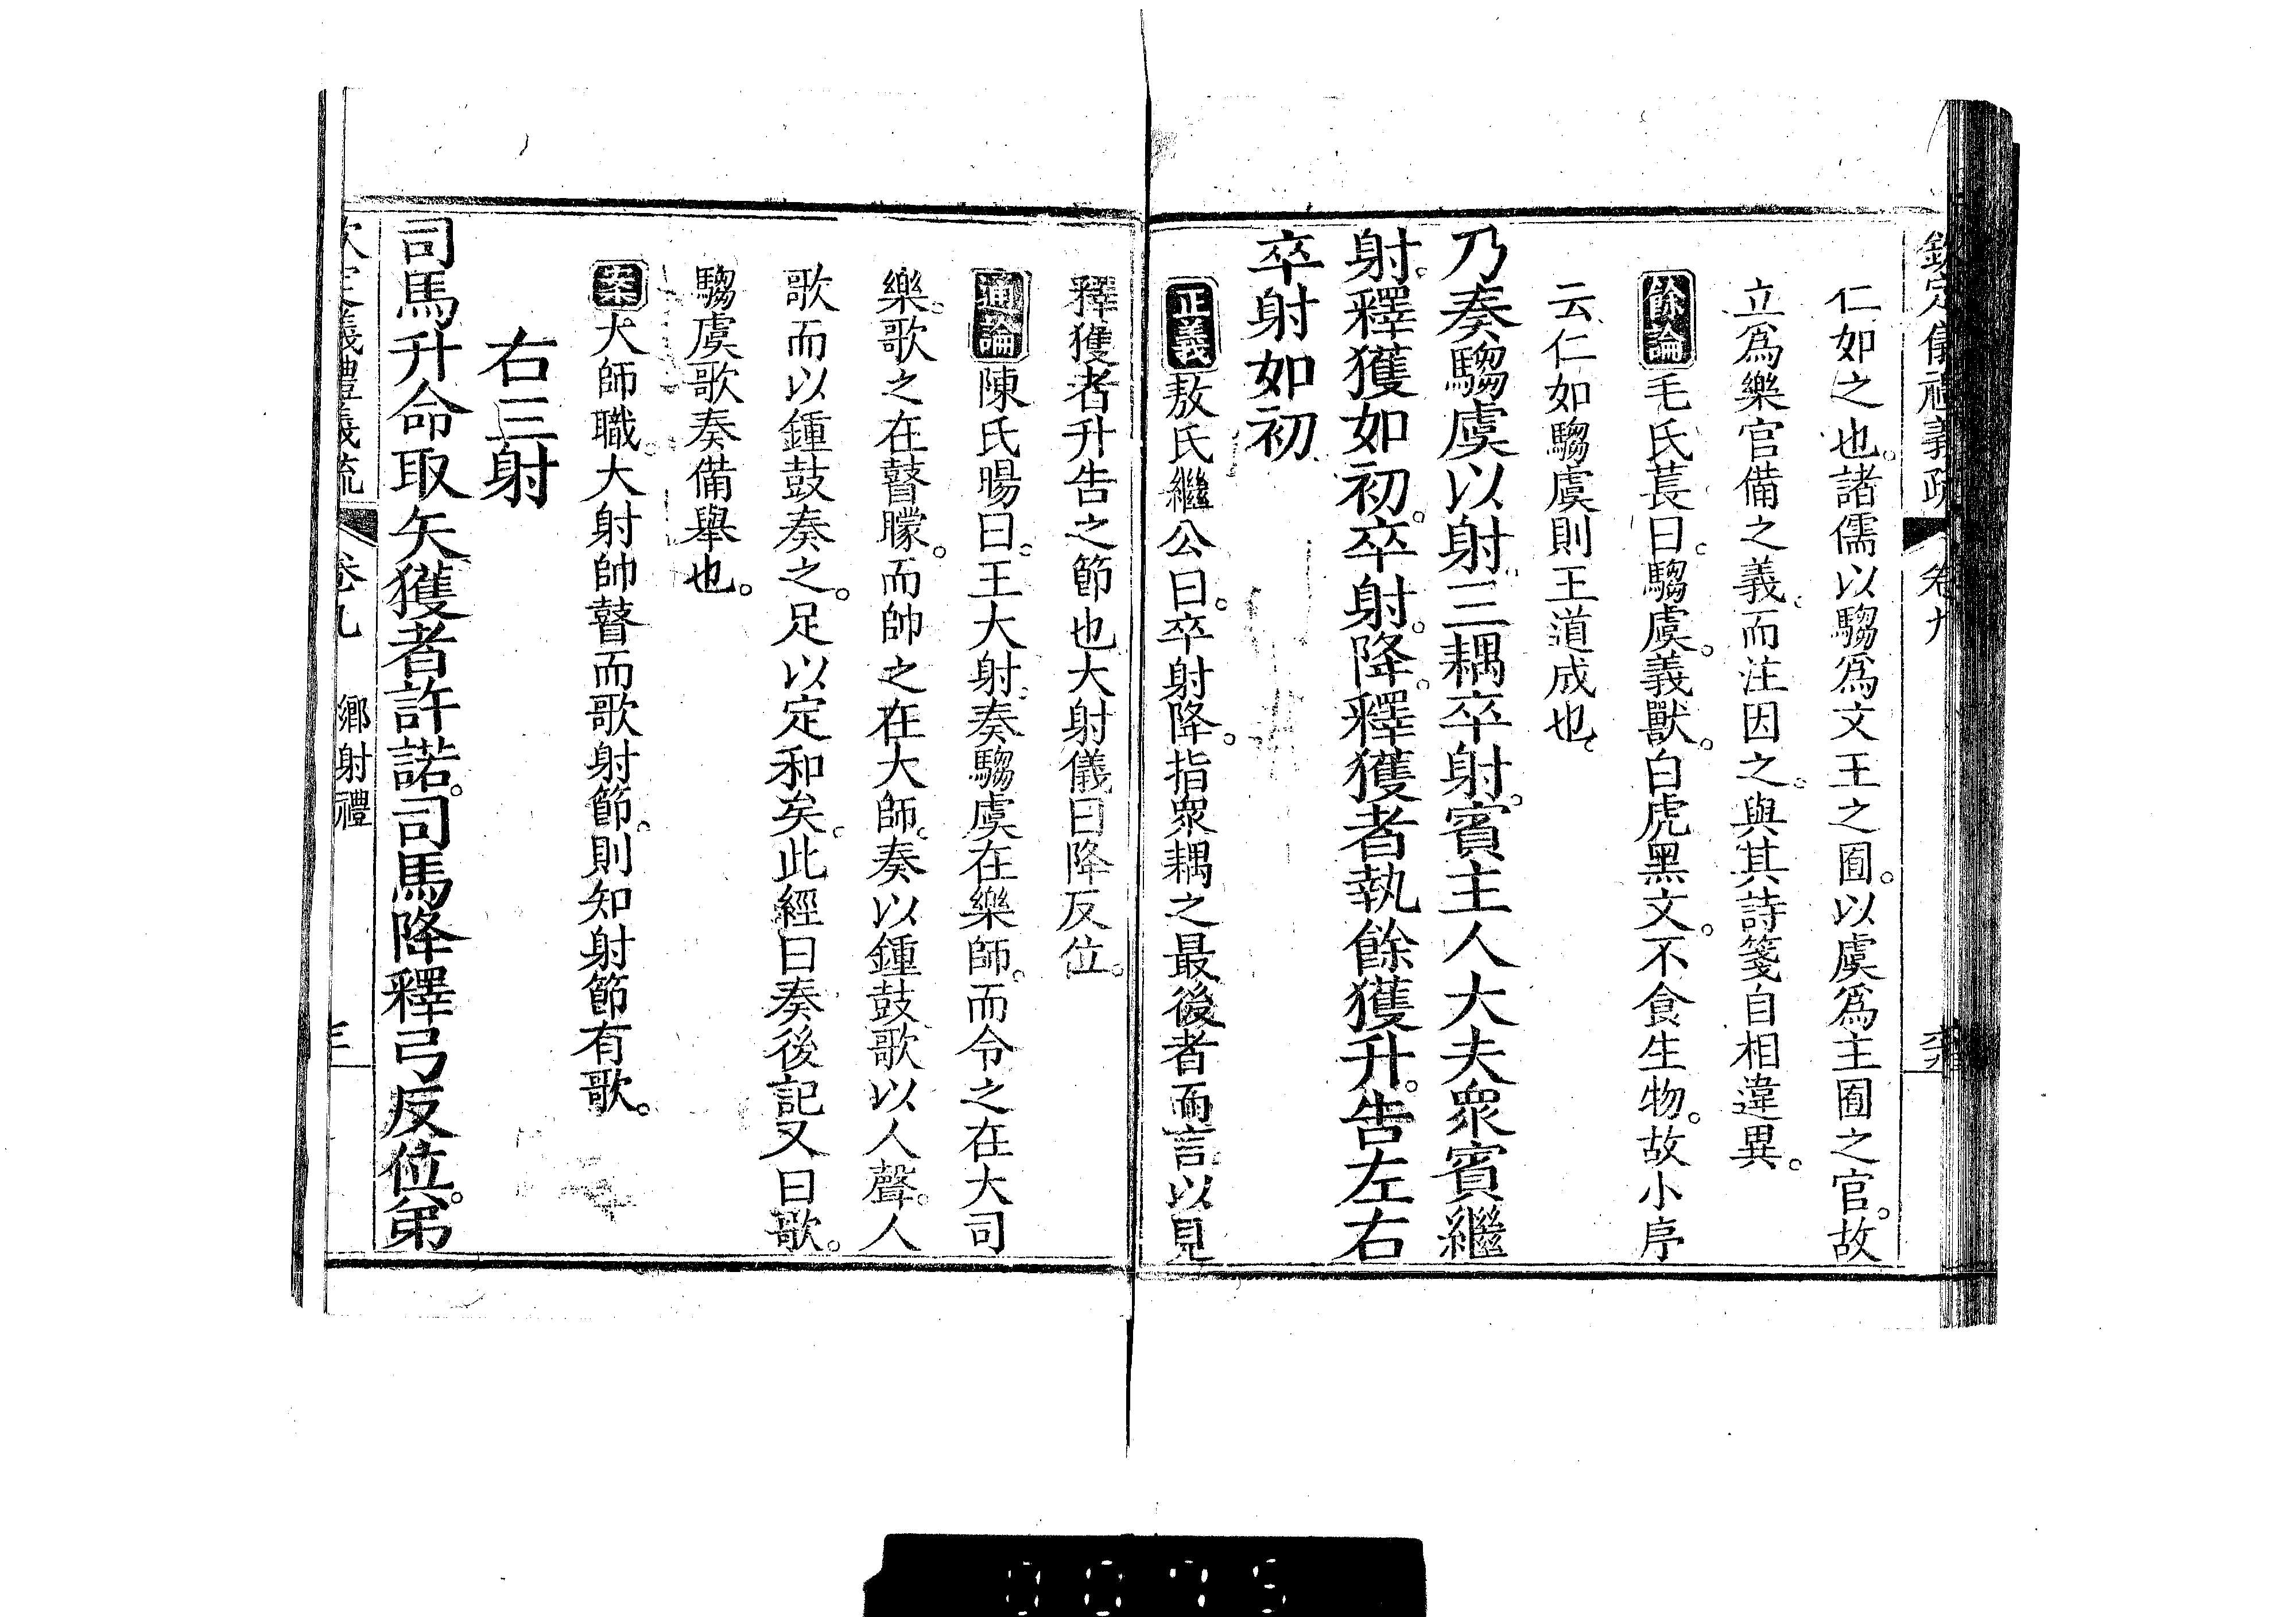 欽定儀禮義疏 卷九
仁如之也。諸儒以騶爲文王之囿。以虞爲主囿之官。故
立爲樂官備之義。而注因之。與其詩箋自相違異。
餘論毛氏萇曰。騶虞。義獸。白虎黑文。不食生物。故小序
云仁如騶虞則王道成也。
乃奏騶虞以射。三耦卒射。賓主人大夫衆賓繼
射。釋獲如初。卒射。降。釋獲者執餘獲升。告左右
卒射如初
正義敖氏繼公曰。卒射降。指衆耦之最後者而言。以見
釋獲者升告之節也大射儀曰降反位。
通論陳氏暘曰。王大射。奏騶虞在樂師。而令之在大司
樂。歌之在瞽矇。而帥之在大師。奏以鍾鼓歌以人聲。人
歌而以鍾鼓奏之。足以定和矣。此經曰奏後記又曰歌。
騶虞歌奏備舉也。
案大師職。大射帥瞽而歌射節。則知射節有歌。
右三射
司馬升命取矢獲者許諾。司馬降釋弓反位。弟
欽定儀禮義疏 卷九 鄉射禮